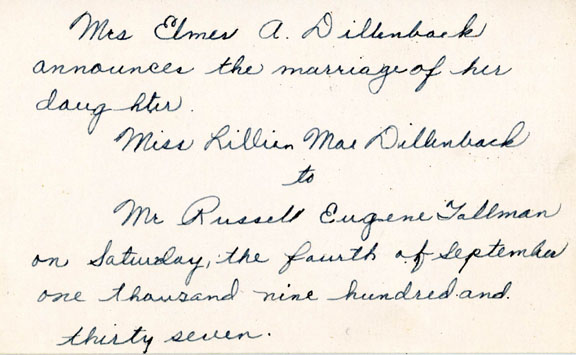 Mrs Elmer A. Dillenback
announces the marriage of her
daughter.
Miss Lillian Mae Dillenback
to
Mr Russell Eugene Tallman
on Saturday, the fourth of September
one thousand nine hundred and.
thirty seven.